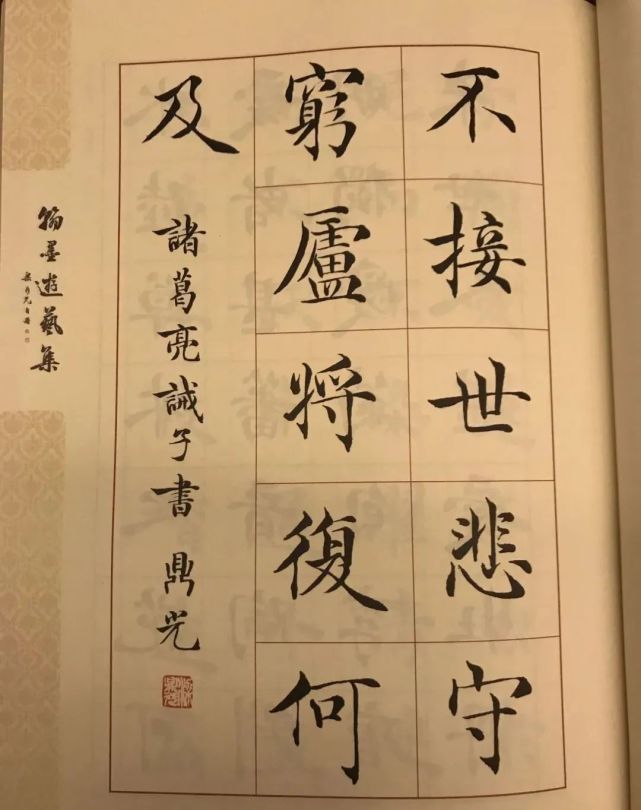 不接世悲守
窮廬將復何
及
諸葛亮誡子書 鼎光
翰墨遊藝集